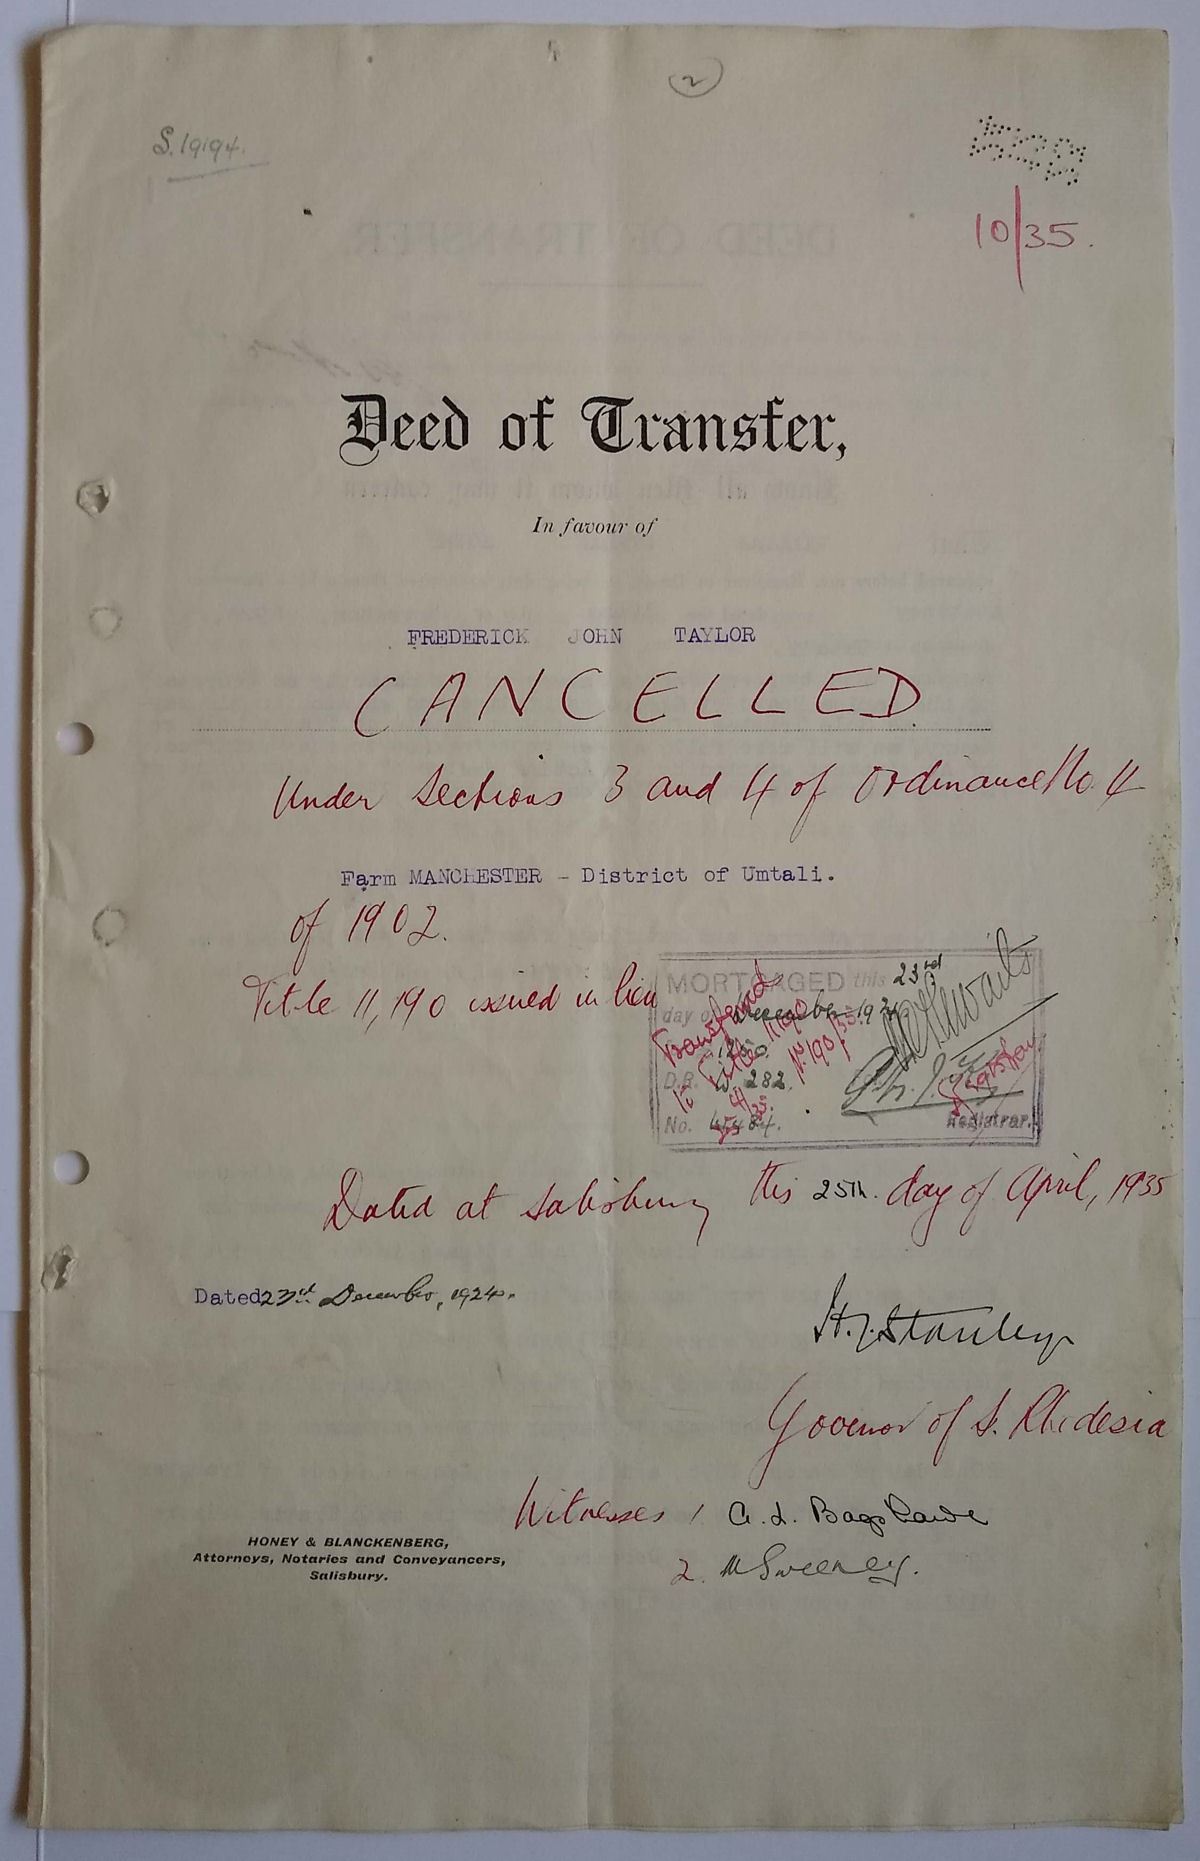 2
S.19194.
10/35.
Deed of Transfer,
In favour of
FREDERICK JOHN TAYLOR
CANCELLED
Under Sections 3 and 4 of Ordinance No. 4
Farm MANCHESTER - District of Umtali.
of 1902.
Title 11,190 issued in lieu
MORTGAGED this 23rd
day of December 1924
Transferred
to Title 11190
No. 190/35
D.B. 282.
No.
Registrar.
Dated at Salisbury this 25th. day of April, 1935
Dated 23rd December, 1924.
H.J. Stanley
Govenor of S. Rhodesia
Witnesses 1 A. L. Bagshawe
2. M Sweeney.
HONEY & BLANCKENBERG,
Attorneys, Notaries and Conveyancers,
Salisbury.